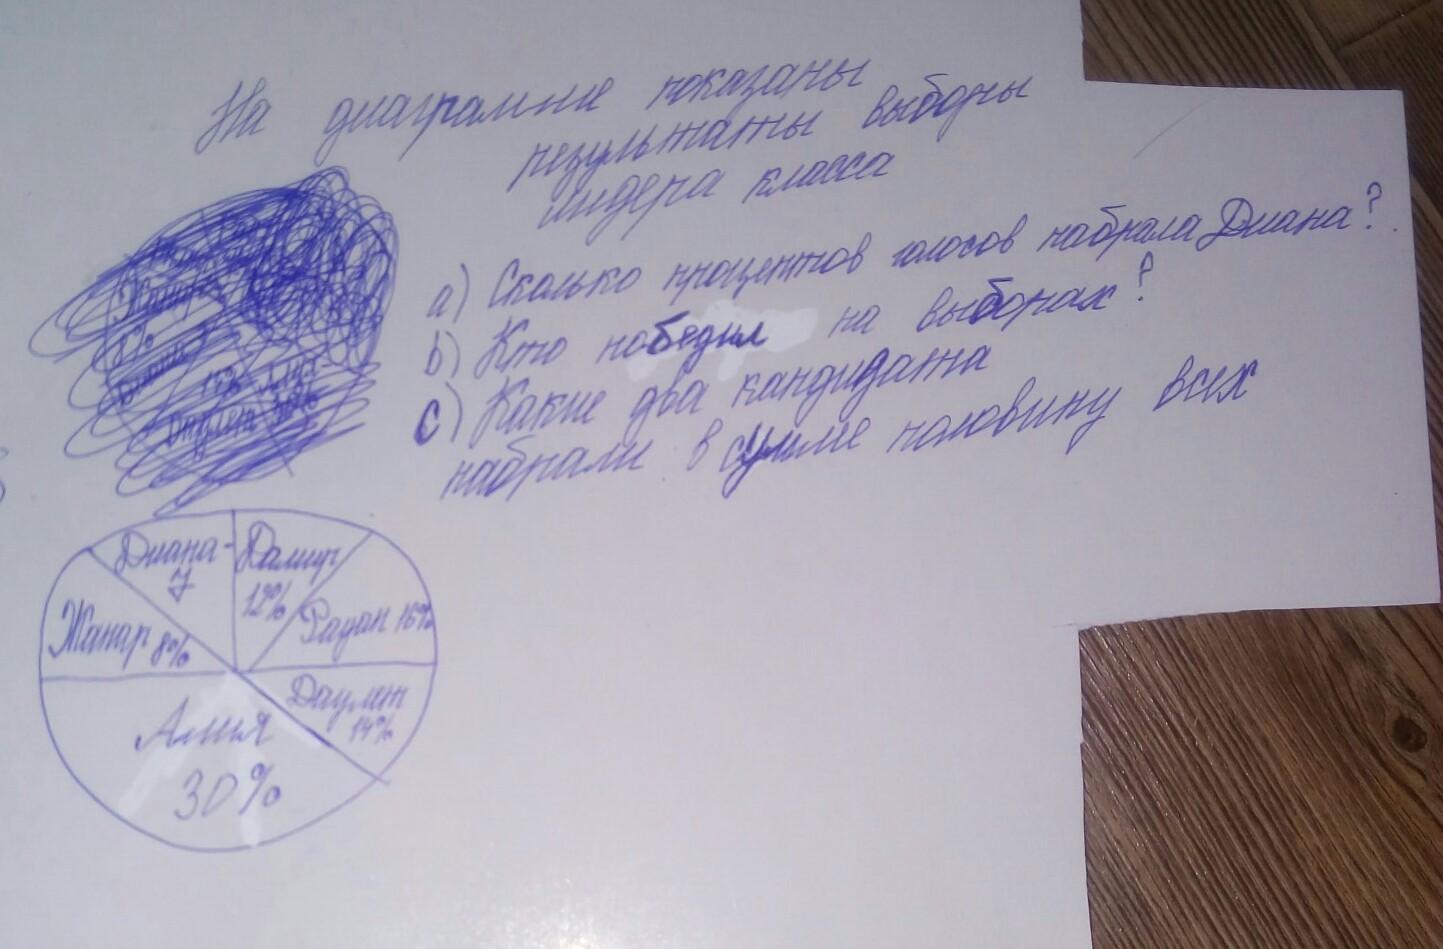 На диаграмме показаны
результаты выборы
лидера класса
а) Сколько процентов голосов набрала Диана?
b) Кто победил на выборах?
с) Какие два кандидата
набрали в сумме половину всех
Диана-
?
Далир
12%
Жанар 8%
Радан 16%
Даулет
14%
Алия
30%